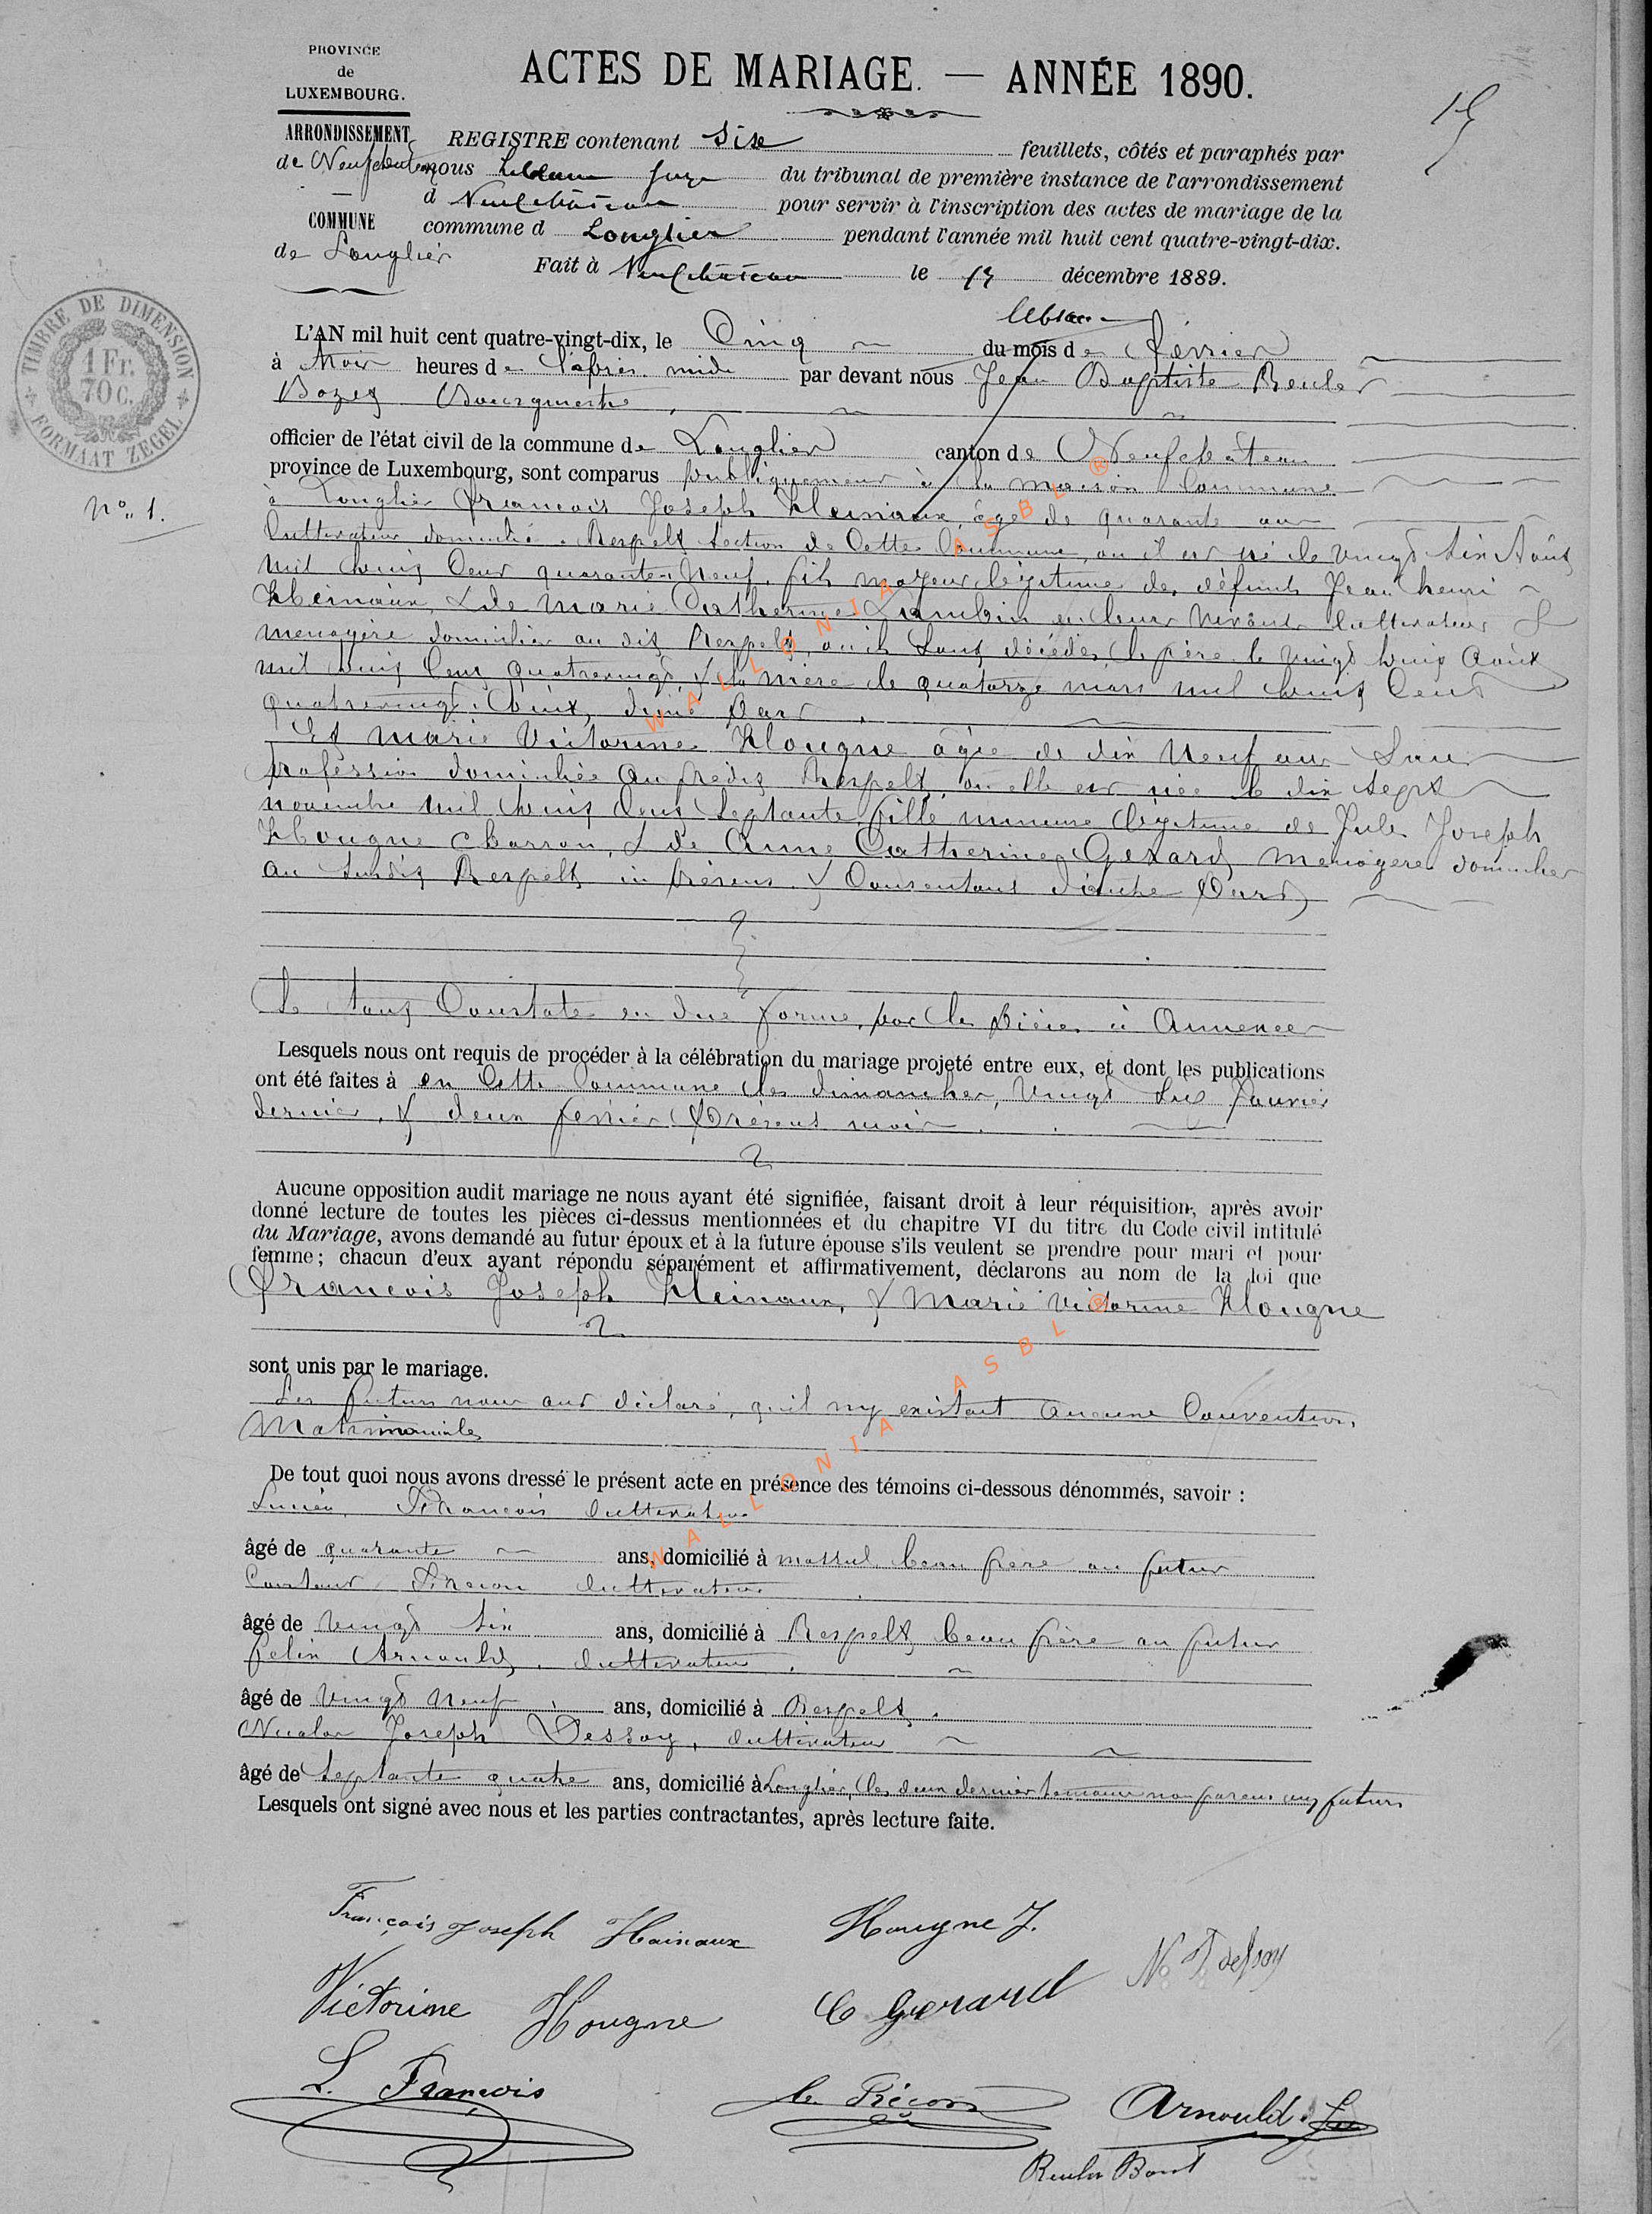 PROVINCE
de
LUXEMBOURG.
ACTES DE MARIAGE. — ANNÉE 1890.
15
ARRONDISSEMENT
de Neufchâteau
COMMUNE
de Longlier
REGISTRE contenant Six feuillets, côtés et paraphés par
nous Leblanc Juge du tribunal de première instance de l'arrondissement
d Neufchâteau pour servir à l'inscription des actes de mariage de la
commune d Longlier pendant l'année mil huit cent quatre-vingt-dix.
Fait à Neufchâteau le 13 décembre 1889.
Leblanc
TIMBRE DE DIMENSION
1 Fr.
70 c.
FORMAAT ZEGEL
L'AN mil huit cent quatre-vingt-dix, le Cinq du mois de Février
à trois heures de l'après midi par devant nous Jean Baptiste Reuler
Bozet Bourgmestre
officier de l'état civil de la commune de Longlier canton de Neufchâteau
province de Luxembourg, sont comparus publiquement à la maison Commune
No. 1.
à Longlier François Joseph Heinaux, âgé de quarante ans
Cultivateur domicilié à Respelt section de Cette Commune, ou il est né le vingt six Août
mil huit Cent quarante Neuf, fils majeur légitime de défunts Jean henri
Heinaux, & de Marie Catherine Lambin en leur vivant Cultivateur &
menagère domiciliés au dit Respelt, ou ils sont décédés, le père le vingt huit Août
mil huit Cent quatrevingt & la mère le quatorze mars mil huit Cent
quatrevingt huit, d'une part
Et Marie Victorine Hougne agée de dix Neuf ans Sans
profession domiciliée au prédit Respelt, ou elle est née le dix sept
novembre mil huit Cent Septante, fille mineure légitime de Jules Joseph
Hougne Charron, & de Anne Catherine Gerard menagère domiciliés
au susdit Respelt ici présens & Consentans d'autre Part
Le tout Constaté en due forme, par les pièces à Annexer
Lesquels nous ont requis de procéder à la célébration du mariage projeté entre eux, et dont les publications
ont été faites à en Cette Commune les dimanches, Vingt Six Janvier
dernier, & deux fevrier présent mois
Aucune opposition audit mariage ne nous ayant été signifiée, faisant droit à leur réquisition, après avoir
donné lecture de toutes les pièces ci-dessus mentionnées et du chapitre VI du titre du Code civil intitulé
du Mariage, avons demandé au futur époux et à la future épouse s'ils veulent se prendre pour mari et pour
femme; chacun d'eux ayant répondu séparément et affirmativement, déclarons au nom de la loi que
François Joseph Heinaux, & Marie Victorine Hougne
sont unis par le mariage.
Les futurs nous ont déclaré, qu'il n'y existait aucune Convention
Matrimoniale
De tout quoi nous avons dressé le présent acte en présence des témoins ci-dessous dénommés, savoir :
Lucien François Cultivateur
âgé de quarante ans, domicilié à massul beau frère au futur
Constant Piécon Cultivateur
âgé de vingt six ans, domicilié à Respelt beau frère au futur
felix Arnould, Cultivateur
âgé de Vingt Neuf ans, domicilié à Respelt
Nicolas Joseph Dessoy, Cultivateur
âgé de Septante quatre ans, domicilié à Longlier, les deux dernier temoins non parens aux futurs
Lesquels ont signé avec nous et les parties contractantes, après lecture faite.
François Joseph Hainaux
Hougne J.
Victorine Hougne
C Gerard
N. J. dessoy
L. François
C. Piécon
Arnould.
Reuler Bozet
WALLONIA ASBL ®
WALLONIA ASBL ®